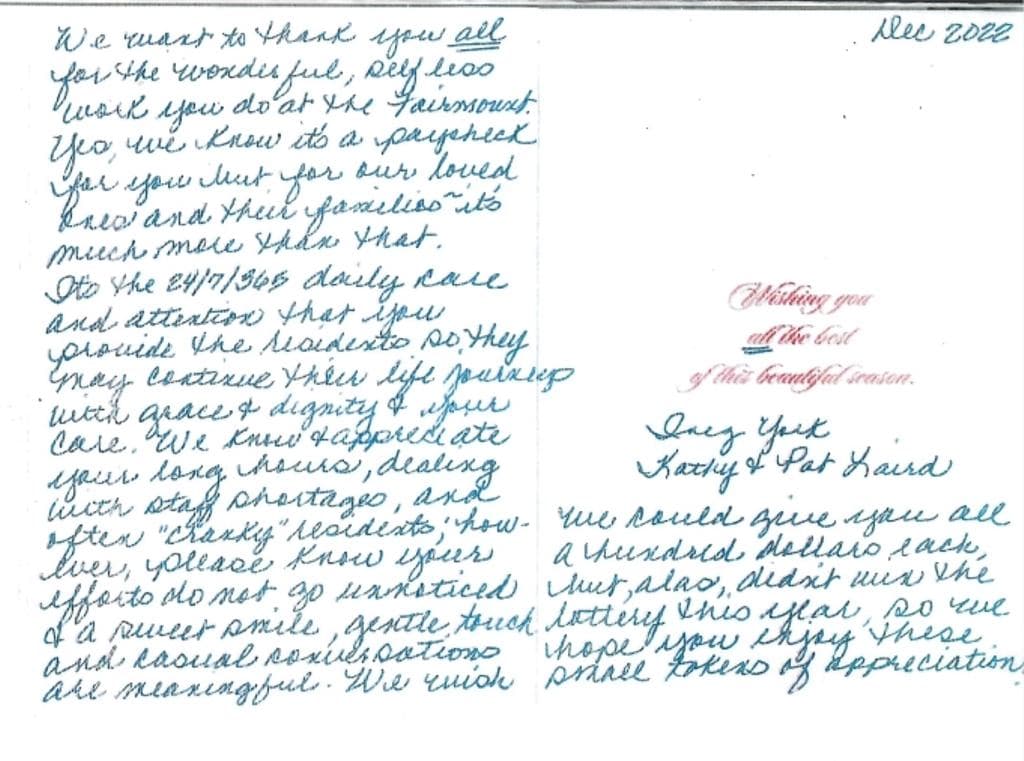 Dec 2022
We want to thank you all
for the wonderful, selfless
work you do at the Fairmount.
Yes, we know it's a paycheck
for you but for our loved
ones and their families ~ it's
much more than that.
Its the 24/7/365 daily care
and attention that you
provide the residents so they
may continue their life journey
with grace & dignity & your
care. We know & appreciate
your long hours, dealing
with staff shortages, and
often "cranky" residents; how-
ever, please know your
efforts do not go unnoticed
& a sweet smile, gentle touch
and casual conversations
are meaningful. We wish
Wishing you
all the best
of this beautiful season.
Inez York
Kathy & Pat Laird
we could give you all
a hundred dollars each,
but, alas, didn't win the
lottery this year, so we
hope you enjoy these
small tokens of appreciation.